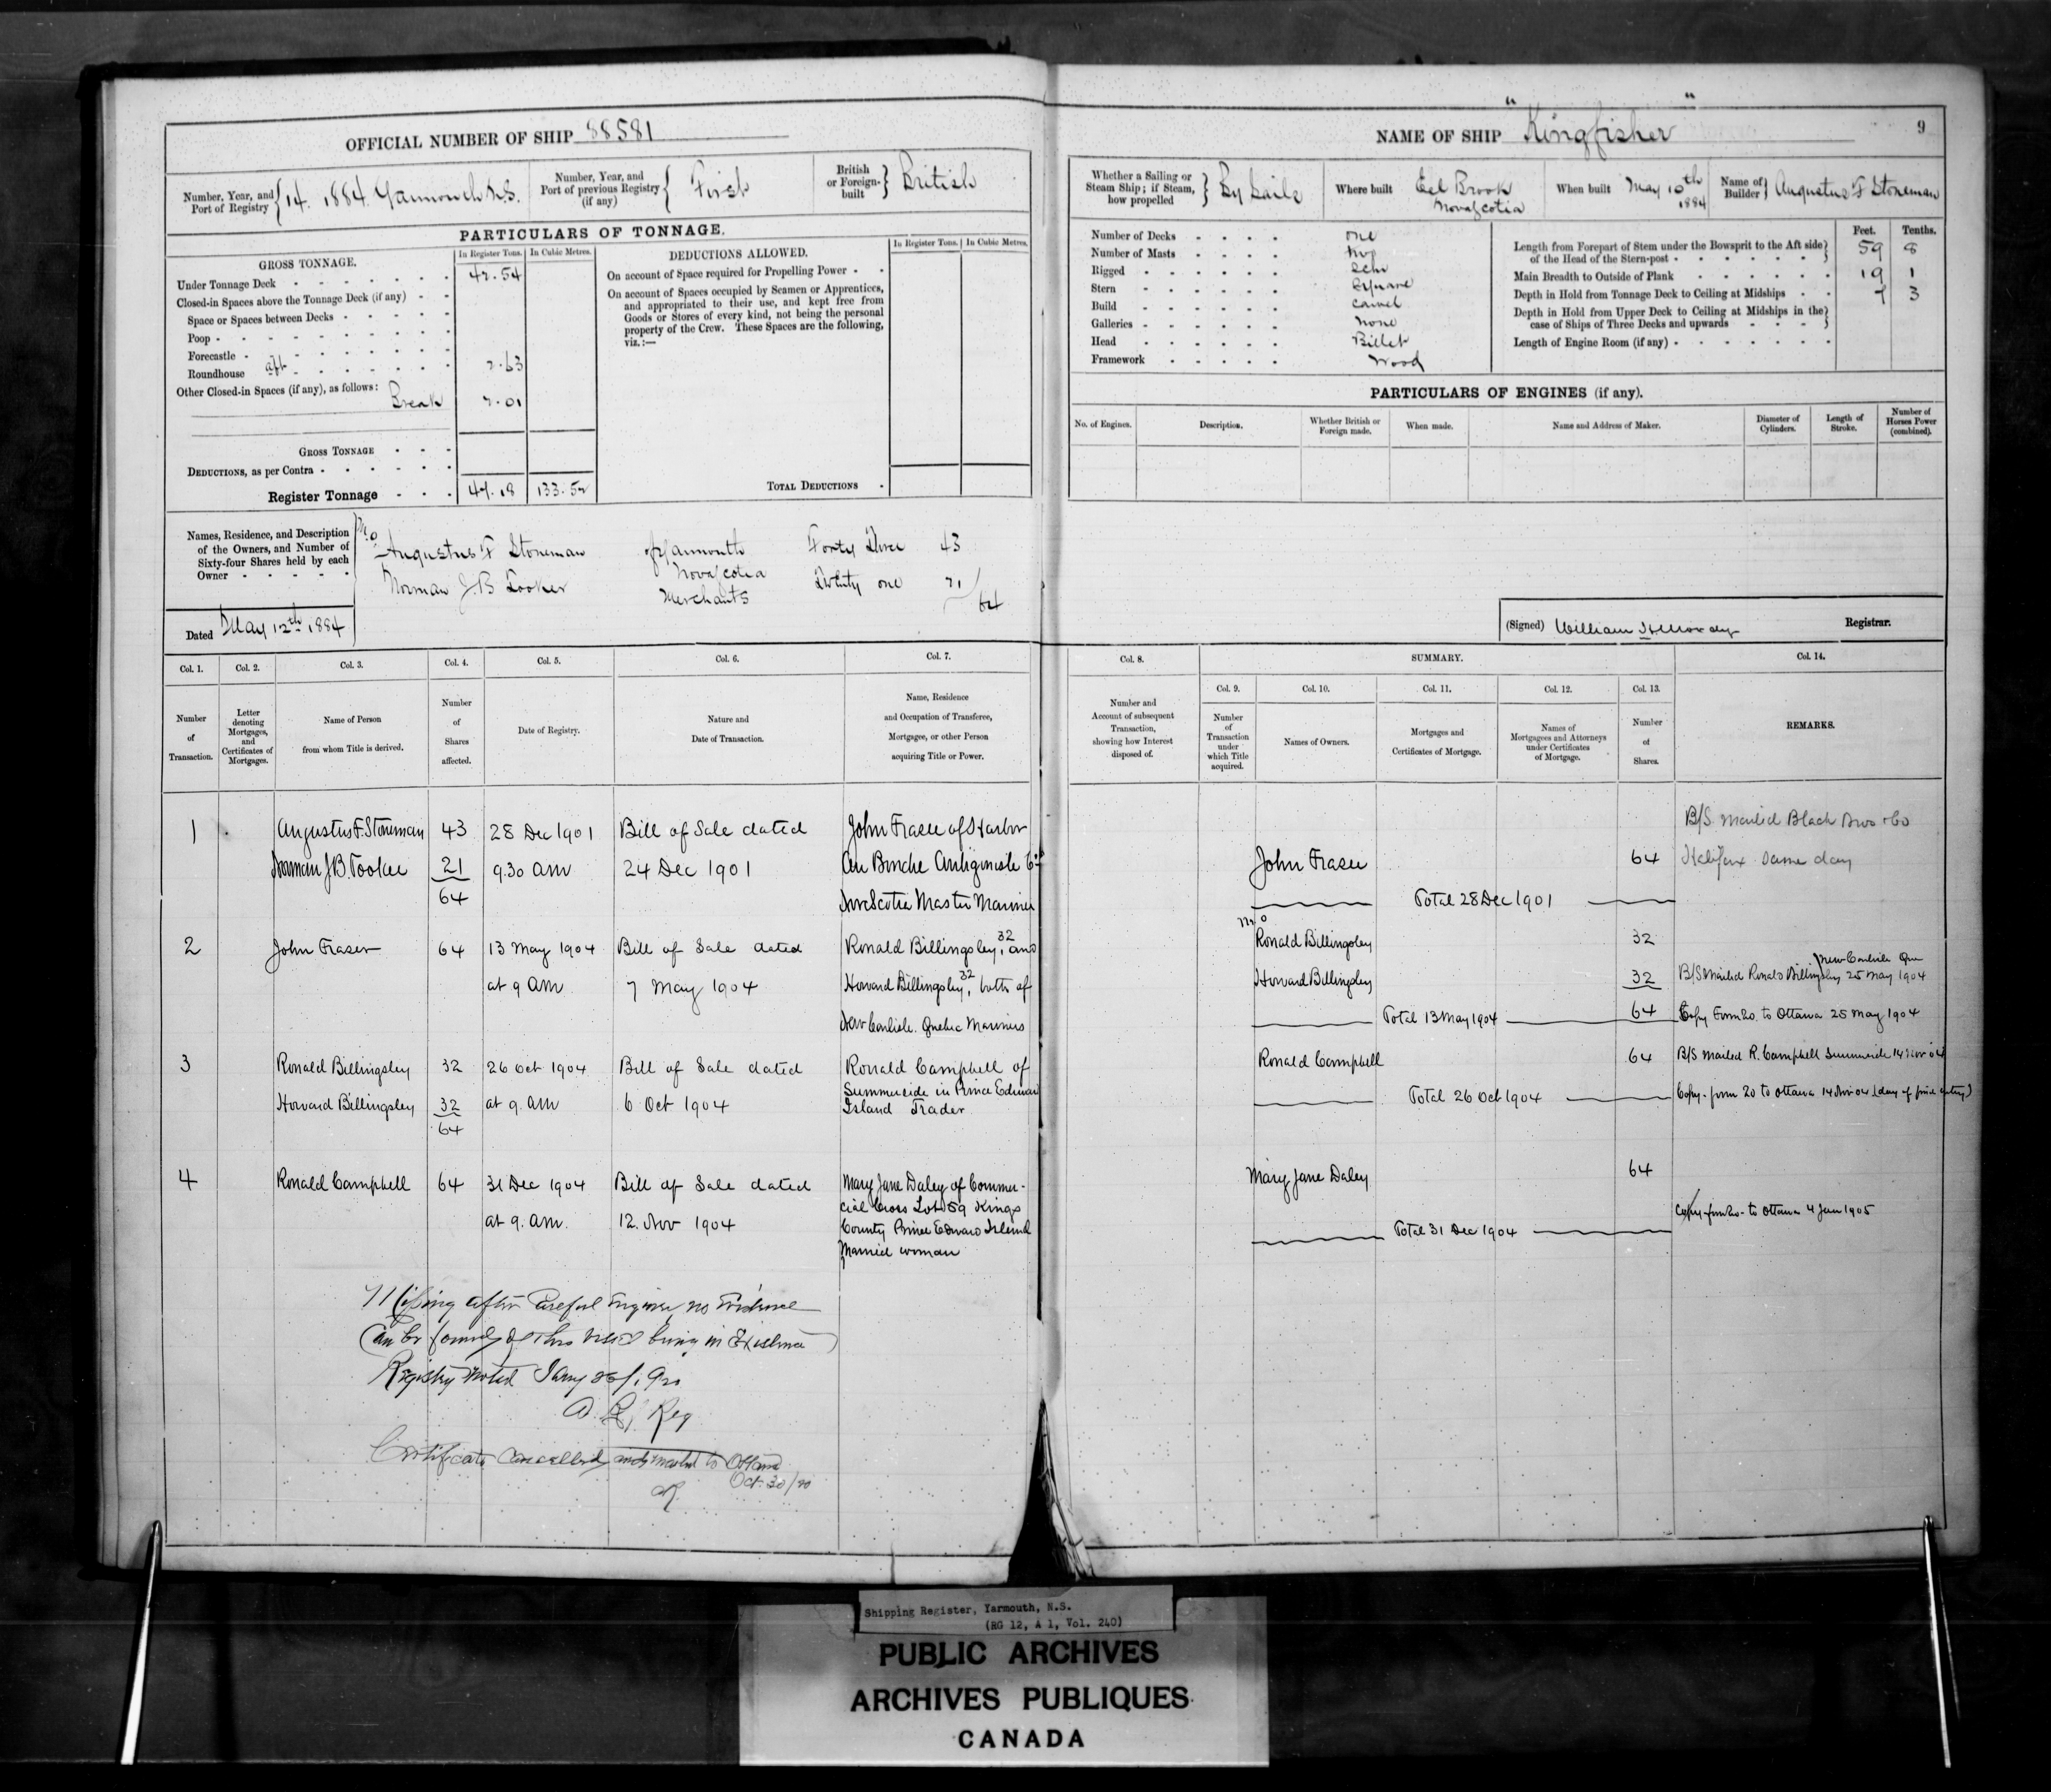 OFFICIAL NUMBER OF SHIP 88581
Number, Year, and Port of Registry 14. 1884 Yarmouth N.S.
Number, Year, and Port of previous Registry (if any) First
British or Foreign-built British
PARTICULARS OF TONNAGE.
GROSS TONNAGE.
In Register Tons. In Cubic Metres.
Under Tonnage Deck 42.54
Closed-in Spaces above the Tonnage Deck (if any)
Space or Spaces between Decks
Poop
Forecastle
Roundhouse aft 2.63
Other Closed-in Spaces (if any), as follows:
Break 2.01
GROSS TONNAGE
DEDUCTIONS, as per Contra
Register Tonnage 47.18 133.52
DEDUCTIONS ALLOWED.
In Register Tons. In Cubic Metres.
On account of Space required for Propelling Power
On account of Spaces occupied by Seamen or Apprentices,
and appropriated to their use, and kept free from
Goods or Stores of every kind, not being the personal
property of the Crew. These Spaces are the following,
viz.:—
TOTAL DEDUCTIONS
Names, Residence, and Description
of the Owners, and Number of
Sixty-four Shares held by each
Owner
Augustus F Stoneman of Yarmouth Forty Three 43
Nova Scotia
Norman J.B Tooker Merchants Twenty one 21
64
Dated May 12th 1884
Col. 1. Col. 2. Col. 3. Col. 4. Col. 5. Col. 6. Col. 7.
Number of Transaction.
Letter denoting Mortgages, and Certificates of Mortgages.
Name of Person from whom Title is derived.
Number of Shares affected.
Date of Registry.
Nature and Date of Transaction.
Name, Residence and Occupation of Transferee, Mortgagee, or other Person acquiring Title or Power.
1 Augustus F Stoneman 43 28 Dec 1901 Bill of Sale dated John Fraser of Harbor
Norman J.B. Tooker 21 9.30 am 24 Dec 1901 Au Bouche Antigonish Co
64 Nova Scotia Master Mariner
2 John Fraser 64 13 May 1904 Bill of Sale dated Ronald Billingsley, 32 and
at 9 am 7 May 1904 Howard Billingsley, 32 both of
New Carlisle. Quebec Mariners
3 Ronald Billingsley 32 26 Oct 1904 Bill of Sale dated Ronald Campbell of
Howard Billingsley 32 at 9. am 6 Oct 1904 Summerside in Prince Edward
64 Island Trader
4 Ronald Campbell 64 31 Dec 1904 Bill of Sale dated Mary Jane Daley of Commer-
at 9. am. 12. Nov 1904 cial Cross Lot 59 Kings
County Prince Edward Island
Married woman
Missing after Careful Enquiry no Evidence
Can be found of this vessel being in Existence
Registry Closed
Reg
Certificate Cancelled and mailed to Ottawa
Oct. 30/20
NAME OF SHIP "Kingfisher"
9
Whether a Sailing or Steam Ship; if Steam, how propelled By Sails
Where built Eel Brook Nova Scotia
When built May 10th 1884
Name of Builder Augustus F Stoneman
Number of Decks one
Number of Masts two
Rigged Schr
Stern Square
Build Carvel
Galleries none
Head Billet
Framework Wood
Feet. Tenths.
Length from Forepart of Stem under the Bowsprit to the Aft side of the Head of the Stern-post 59 8
Main Breadth to Outside of Plank 19 1
Depth in Hold from Tonnage Deck to Ceiling at Midships 7 3
Depth in Hold from Upper Deck to Ceiling at Midships in the case of Ships of Three Decks and upwards
Length of Engine Room (if any)
PARTICULARS OF ENGINES (if any).
No. of Engines. Description. Whether British or Foreign made. When made. Name and Address of Maker. Diameter of Cylinders. Length of Stroke. Number of Horses Power (combined).
(Signed) William H Moody Registrar.
Col. 8. SUMMARY. Col. 14.
Col. 9. Col. 10. Col. 11. Col. 12. Col. 13.
Number and Account of subsequent Transaction, showing how Interest disposed of.
Number of Transaction under which Title acquired.
Names of Owners.
Mortgages and Certificates of Mortgage.
Names of Mortgagees and Attorneys under Certificates of Mortgage.
Number of Shares.
REMARKS.
B/S mailed Black Bros & Co
John Fraser 64 Halifax same day
Total 28 Dec 1901
Ronald Billingsley 32
New Carlisle Que
Howard Billingsley 32 B/S Mailed Ronald Billingsley 25 May 1904
Total 13 May 1904 64 Copy Form 20. to Ottawa 25 May 1904
Ronald Campbell 64 B/S mailed R. Campbell Summerside 14 Nov 04
Total 26 Oct 1904 Copy-form 20 to Ottawa 14 Nov 04 (day of
Mary Jane Daley 64
Copy-form 20- to Ottawa 4 Jan 1905
Total 31 Dec 1904
Shipping Register, Yarmouth, N.S.
(RG 12, A 1, Vol. 240)
PUBLIC ARCHIVES
ARCHIVES PUBLIQUES
CANADA